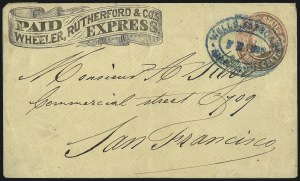 PAID
WHEELER, RUTHERFORD & CO'S
EXPRESS
WELLS, FARGO
Monsieur A
Commercial street 709
San Francisco